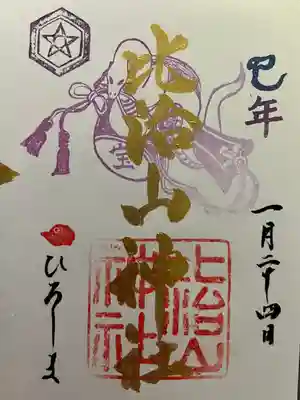 巳年
一月二十四日
比治山神社
宝
比治山
神社
ひろしま